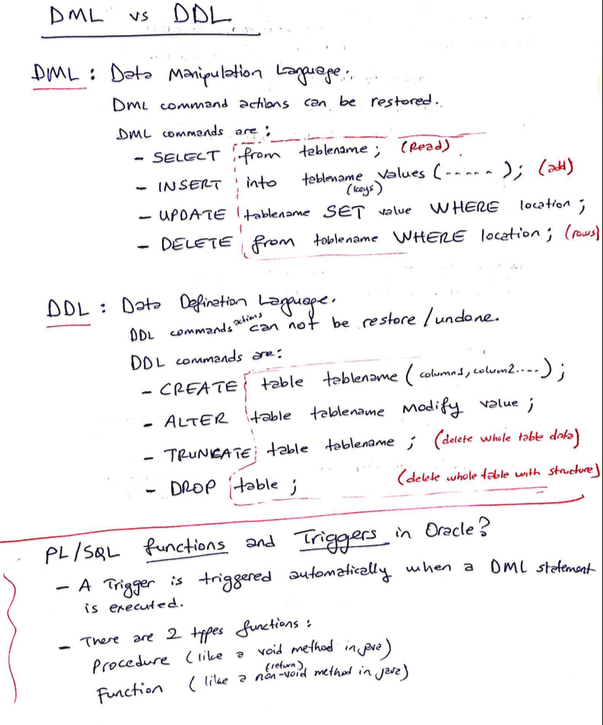 DML vs DDL
DML : Data Manipulation Language.
DML command actions can be restored.
DML commands are :
- SELECT from tablename ; (Read)
- INSERT into tablename (keys) values (-----) ; (add)
- UPDATE tablename SET value WHERE location ;
- DELETE from tablename WHERE location ; (rows)
DDL : Data Defination Language.
DDL commands actions can not be restore / undone.
DDL commands are :
- CREATE table tablename ( columns1, colum2....) ;
- ALTER table tablename Modify value ;
- TRUNCATE table tablename ; (delete whole table data)
- DROP table ; (delete whole table with structure)
PL/SQL functions and Triggers in Oracle?
- A Trigger is triggered automatically when a DML statement
is executed.
- There are 2 types functions :
Procedure (like a void method in java)
Function (like a non-void (return) method in java)